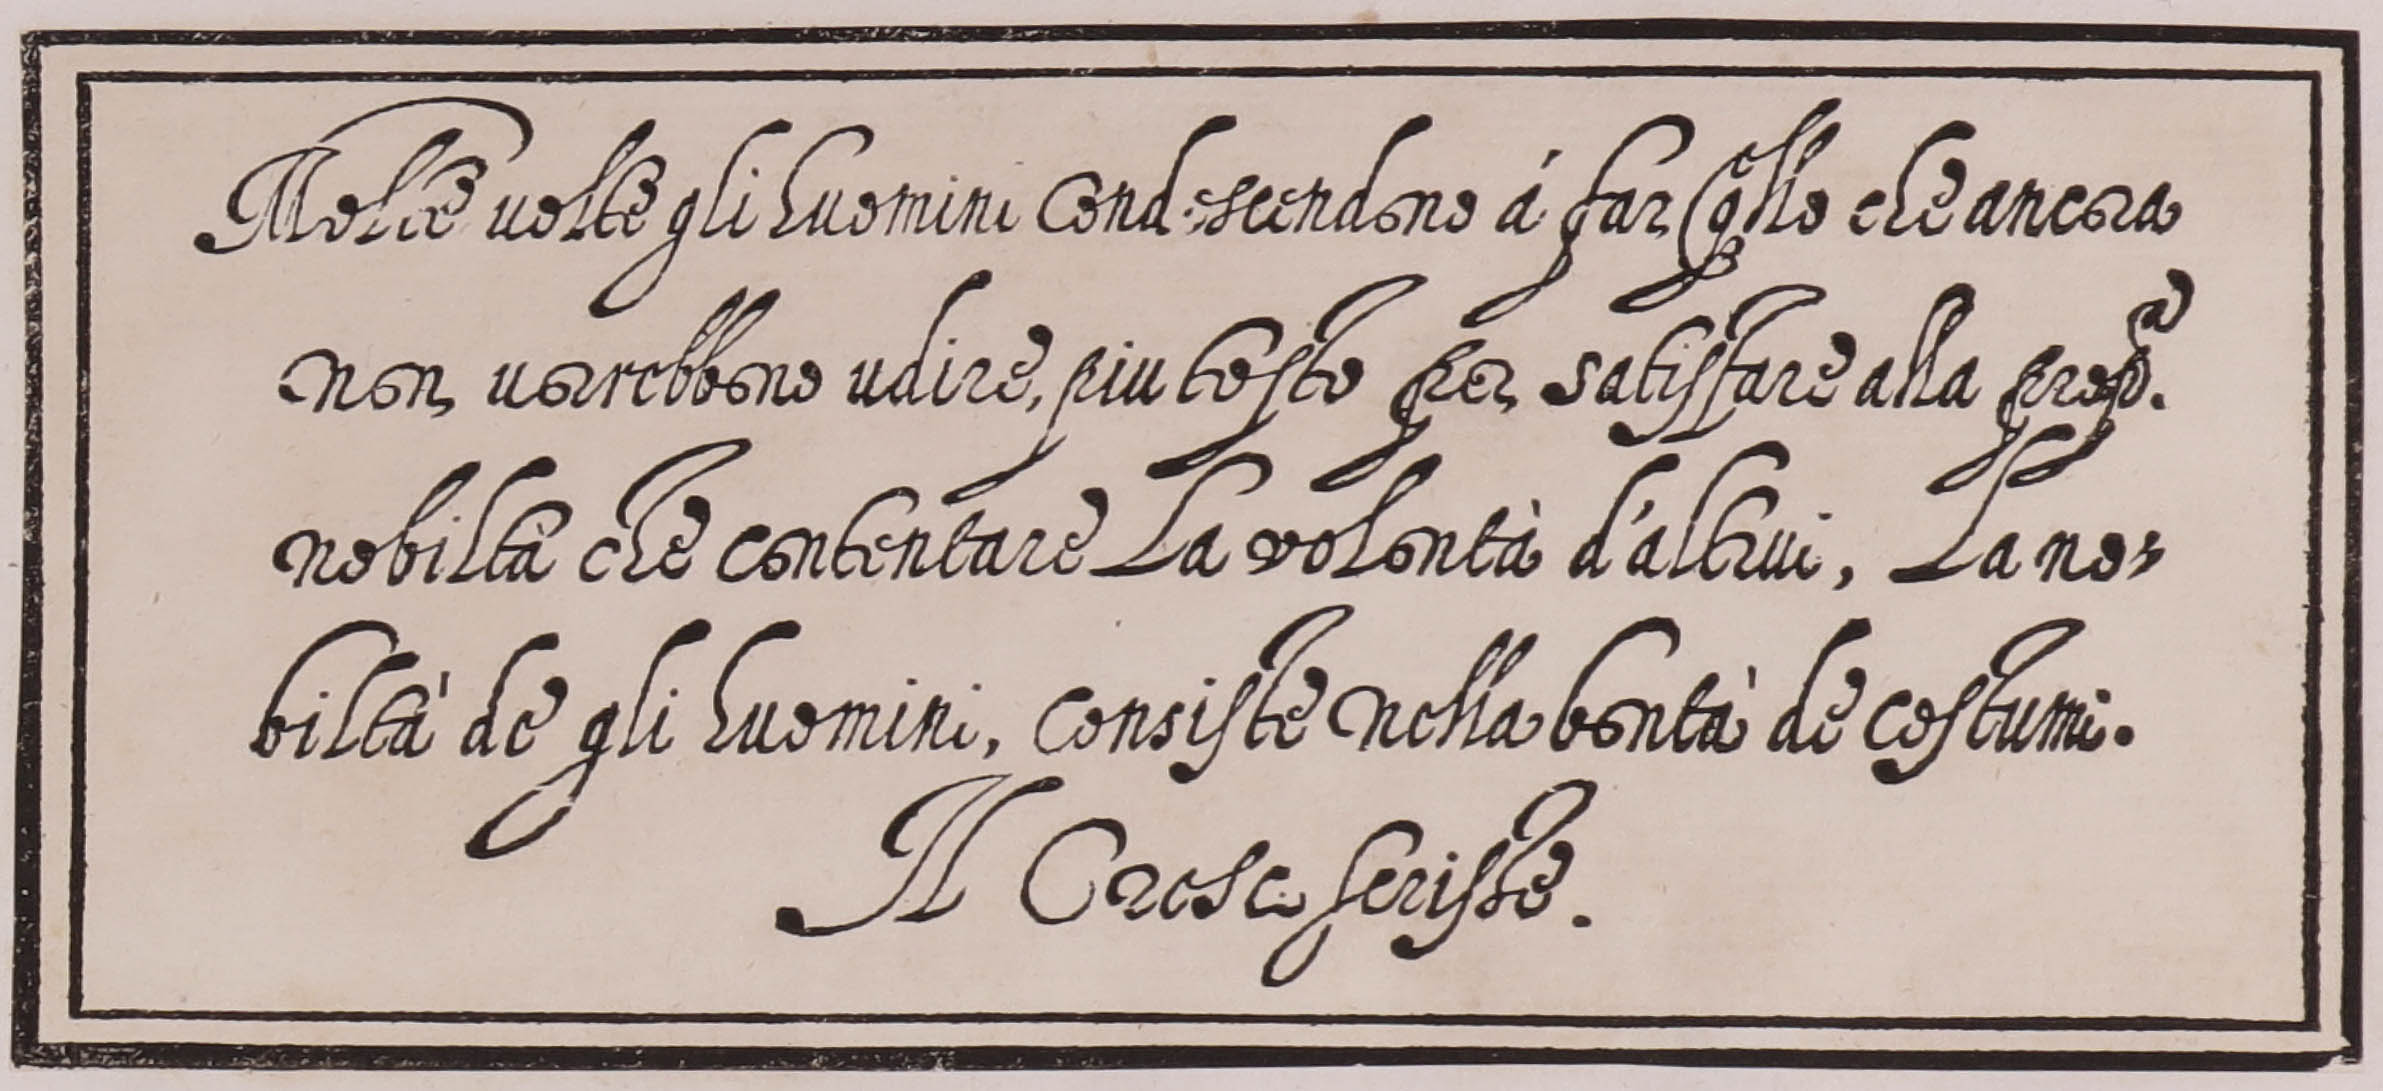 Molte uolte gli huomini condescendono á far q̃llo che ancora
non uorrebbono udire, piu tosto per satisfare alla prop.ᵃ
nobiltà che contentare La volontà d'altrui, La no-
biltà de gli huomini, consiste nella bontà de costumi.
Il Cresci scrisse.